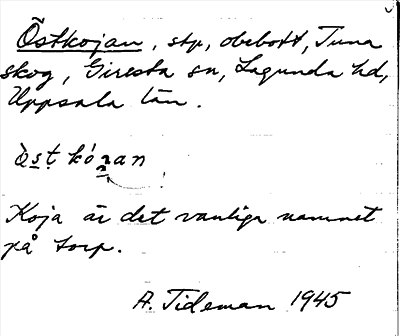 Östkojan, stp, obebott, Tuna
skog, Giresta sn, Lagunda hd,
Uppsala län.
ös̱ṭ kóɀan
Koja är det vanliga namnet
på torp.
A. Tideman 1945